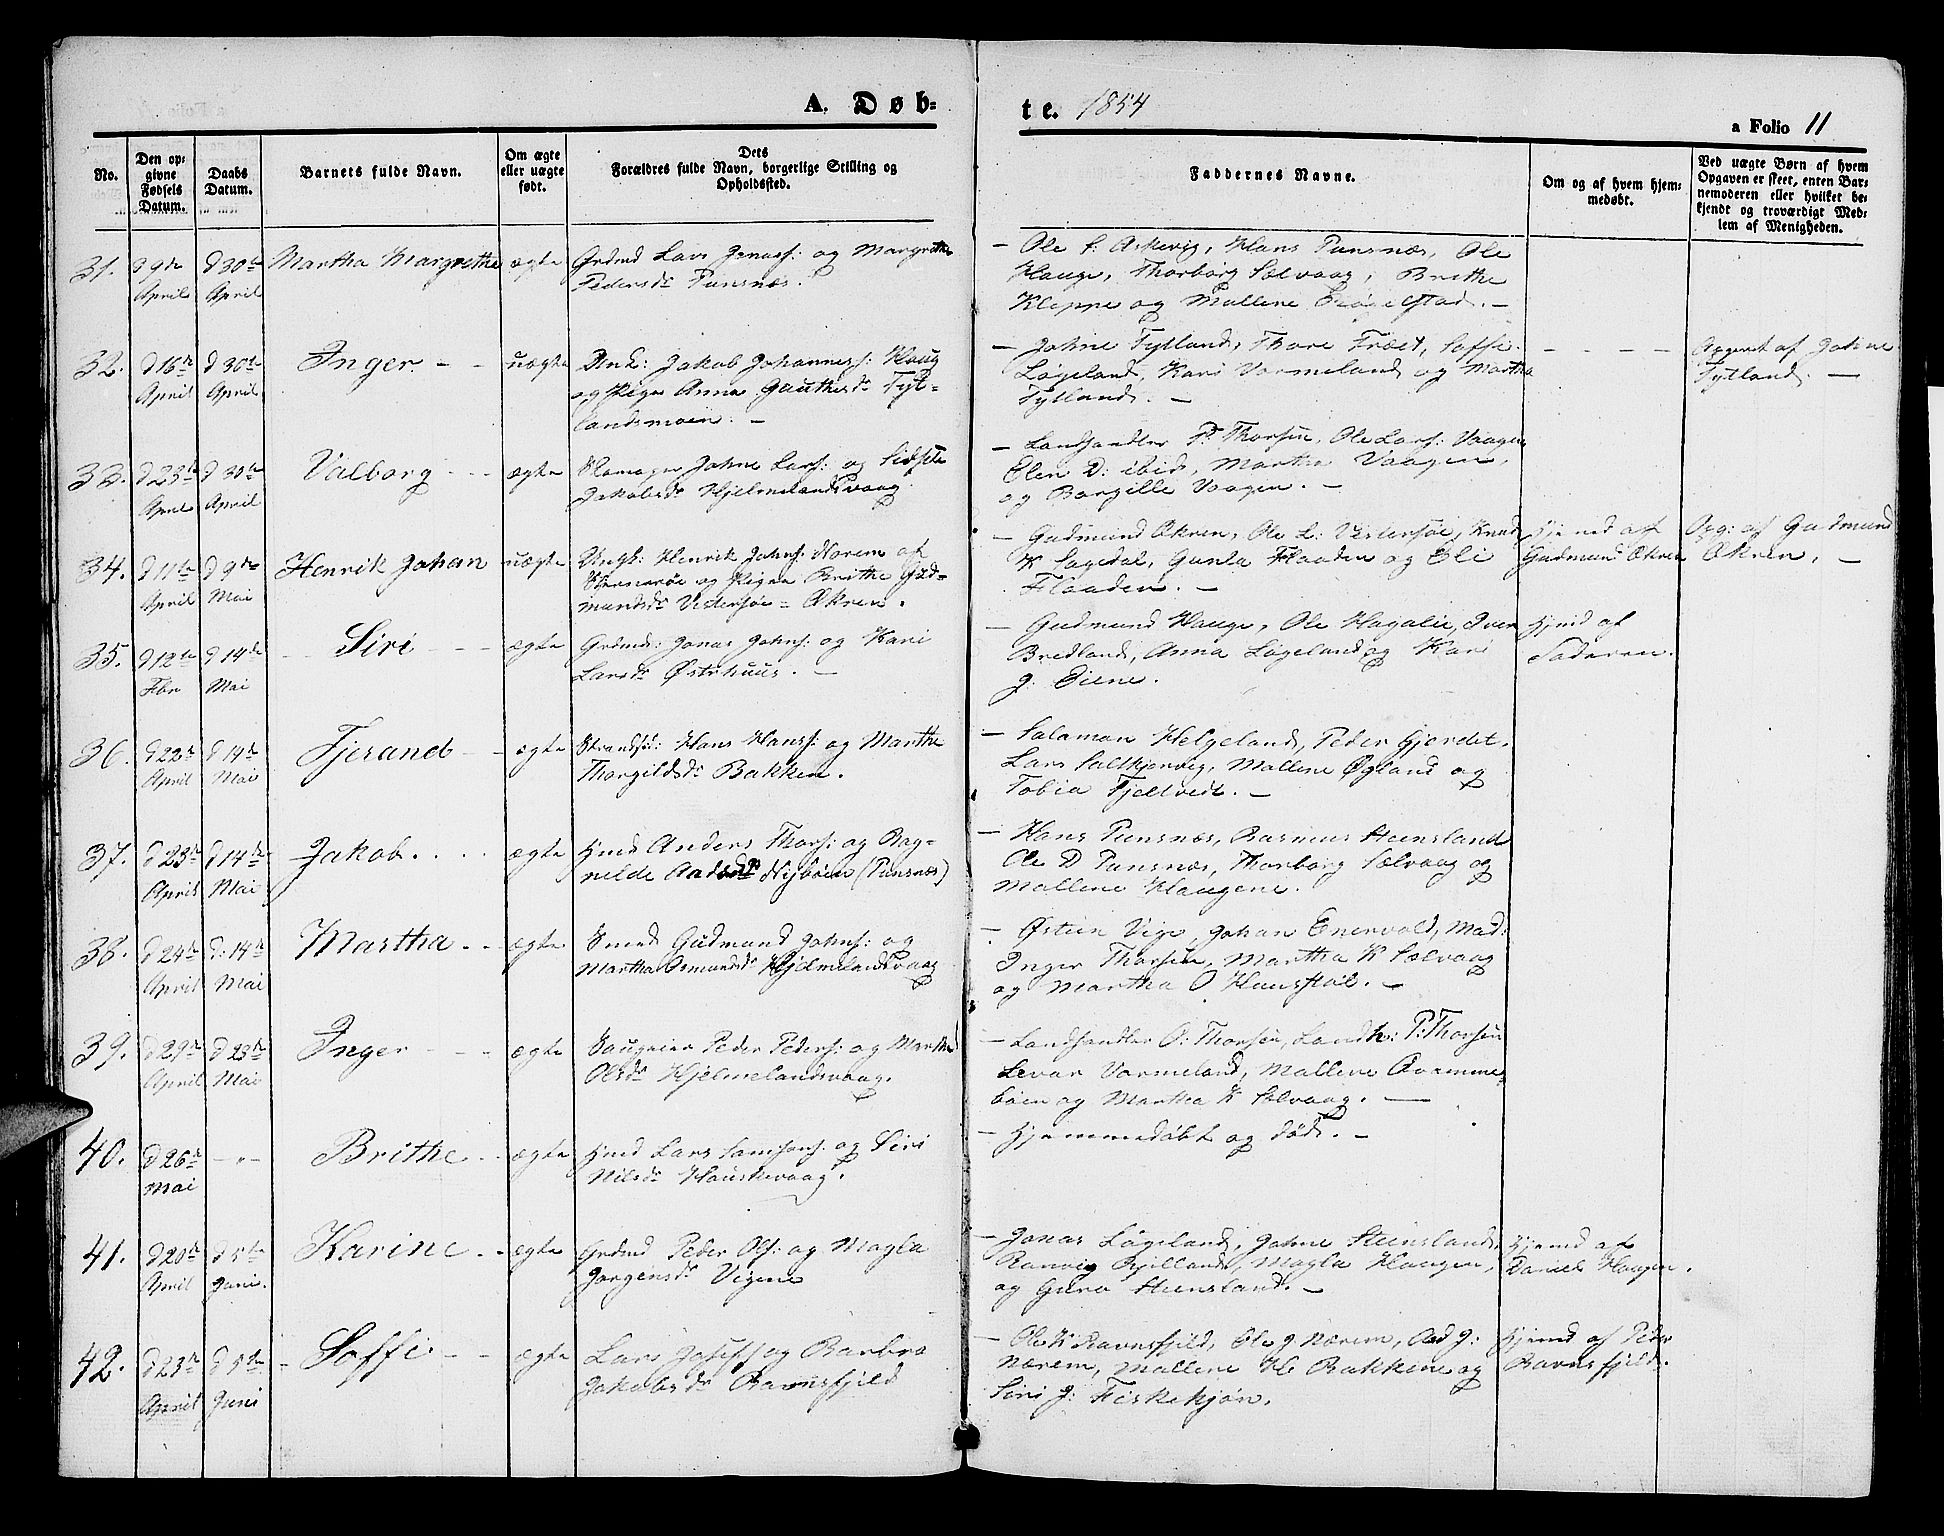 A. Døb=
te. 1854
a Folio 11
No.
Den op=
givne
Fødsels
Datum.
Daabs
Datum.
Barnets fulde Navn.
Om ægte
eller uægte
født.
Dets
Forældres fulde Navn, borgerlige Stilling og
Opholdssted.
Faddernes Navne.
Om og af hvem hjem=
medøbt.
Ved uægte Børn af hvem
Opgaven er skeet, enten Bar=
nemoderen eller hvilket be=
kjendt og troværdigt Med=
lem af Menigheden.
31. April d 30te April Martha Margrethe ægte Grdmd Lars Jonass: og Margrethe
Pedersdr Punsnæs.
— Ole Askevig, Hans Punsnæs, Ole
Hauge, Thorborg Sælvaag, Brithe
Kleppe og Mallene —
32. d 16de April d 30te April Inger - - uægte Unk: Jakob Johanness: Haug
og Pige Anna Gauthesdr Tyt=
landsmoen. —
— Johne Tytland, Thore Træet, Soffi
Løgeland, Kari Vormeland og Martha
Tytland. —
- - - -
Opgivet af Johne
Tytland. —
33. d 23de April d 30te April Valborg - - - ægte Johne Larss: og Sidsele
Jakobsdr Hjelmelandsvaag
— Landhandler P. Thorsen, Ole Larss: Vaagen
Elen D: ibid, Martha Vaagen,
og Borgille Vaagen. —
34. d 11te April d 9de Mai Henrik Johan uægte Ungk: Henrik Johns: Norem af
og Pigen Brithe Gud=
mundsdr Vestersøe = Økren.
— Gudmund Økren, Ole L: Vestersøe, Knud
K Sagedal, Gunla Flaaden og Eli
Flaaden. —
Hjemd af
Gudmund Økren
Opg: af Gudmund
Økren, —
35. d 12te Fbr d 14de Mai Siri - - - ægte Grdmd: Jonas Johns: og Kari
Larsdr Østrhuus. —
— Gudmund Hauge, Ole Hagalie, Iver
Bredland, Anna Løgeland og Kari
J: Eiene.
Hjemd af
Faderen.
36. d 22de April d 14de Mai Tjerand - - ægte Strands: Hans Hanss: og Marthe
Thorgildsdr Bakken.
— Salamon Helgeland, Peder Gjerdet,
Lars Mallene Øgland og
Tobia Fjeltveit. —
37. d 23de April d 14de Mai Jakob. . . . ægte Hmd Anders Thors: og Rag=
nilde Nybøen (Punsnæs)
— Hans Punsnæs, Rasmus Steinsland
Ole D Punsnæs, Thorborg Sælvaag og
Mallene Haugene.
38. d 24de April d. 14de Mai Martha. - - ægte Smed Gudmund Johns: og
Martha Osmundsdr Hjelmelandsvaag
— Østein Vige, Johan Enervold, Mad:
Inger Thorsen, Martha K Sælvaag
og Martha O —
39. d 29de April d 23de Mai Inger - - - ægte Peder Peders: og Marthe
Olsdr Hjelmelandsvaag.
— Landhandler O: Thorsen, Landh: P: Thorsen
Levar Vormeland, Mallene
bøen og Martha K Sælvaag. —
40. d 26de Mai —"— Brithe - - ægte Hmd Lars Samsons: og Siri
Nilsdr
— Hjemmedøbt og død. —
41. d 20de April d 5te Juni. Karine - - ægte Grdmd Peder Ols: og Magla
Jørgensdr Vigene
— Jonas Løgeland, Johne Steinsland,
Ranvig Magla Haugen,
og Guro Steinsland. —
Hjemd af
Daniel Haugen.
42. d 23de April d 5te Juni - Soffie - - ægte Lars Josefs: og Barbro
Jakobsdr Ravnsfjeld
— Ole K Ravnsfjeld, Ole J. Nærem, Aad J:
Nærem, Mallene H: Bakkene og
Siri J: Fiskekjøn.
Hjemd af Peder
Ravnsfjeld.